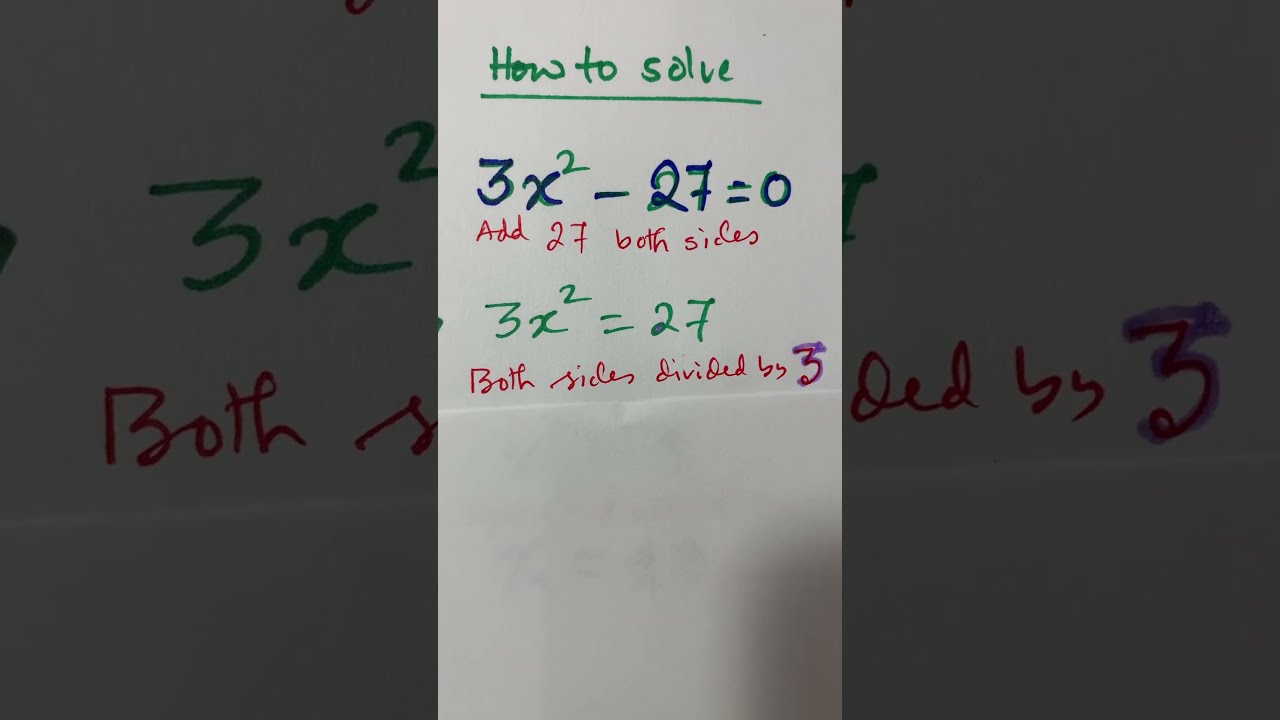 How to solve
3x² - 27 = 0
Add 27 both sides
3x² = 27
Both sides divided by 3